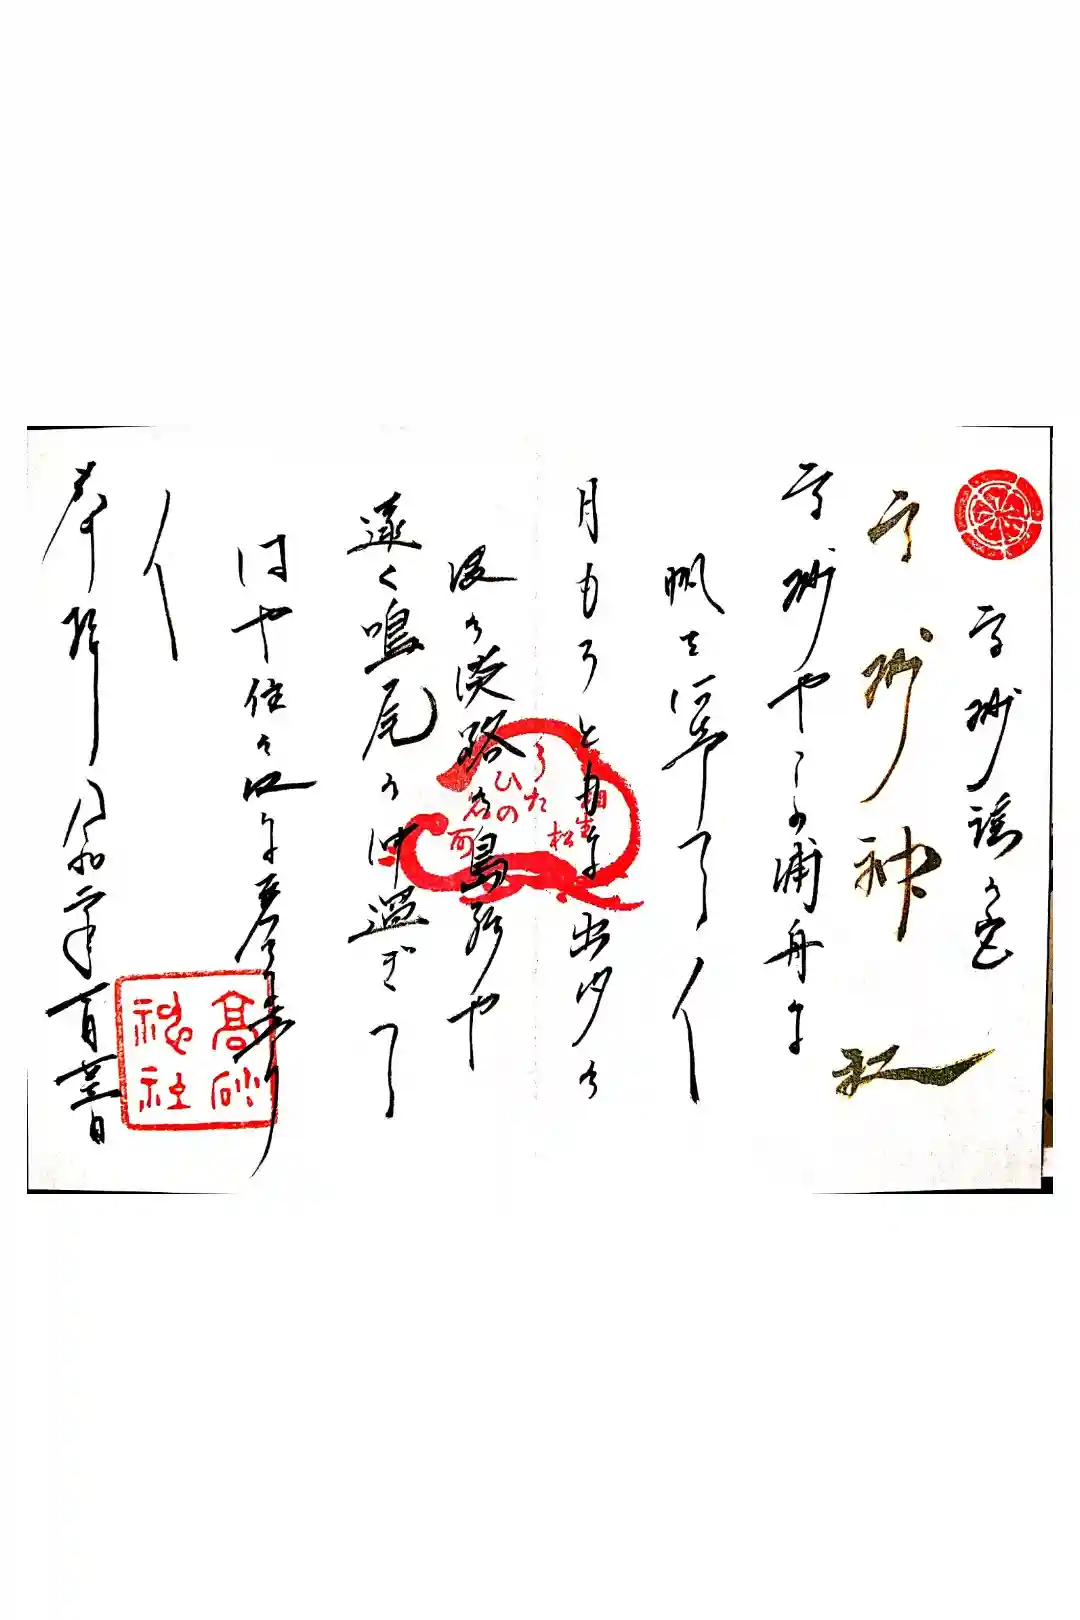 高砂謡の宮
高砂神社
高砂やこの浦舟に
帆を
月もろともに出汐の
波の淡路の島影や
遠く鳴尾の沖過ぎて
はや住之江に着
奉拝 令和
相生
松
うた
ひの
名所
高砂
神社